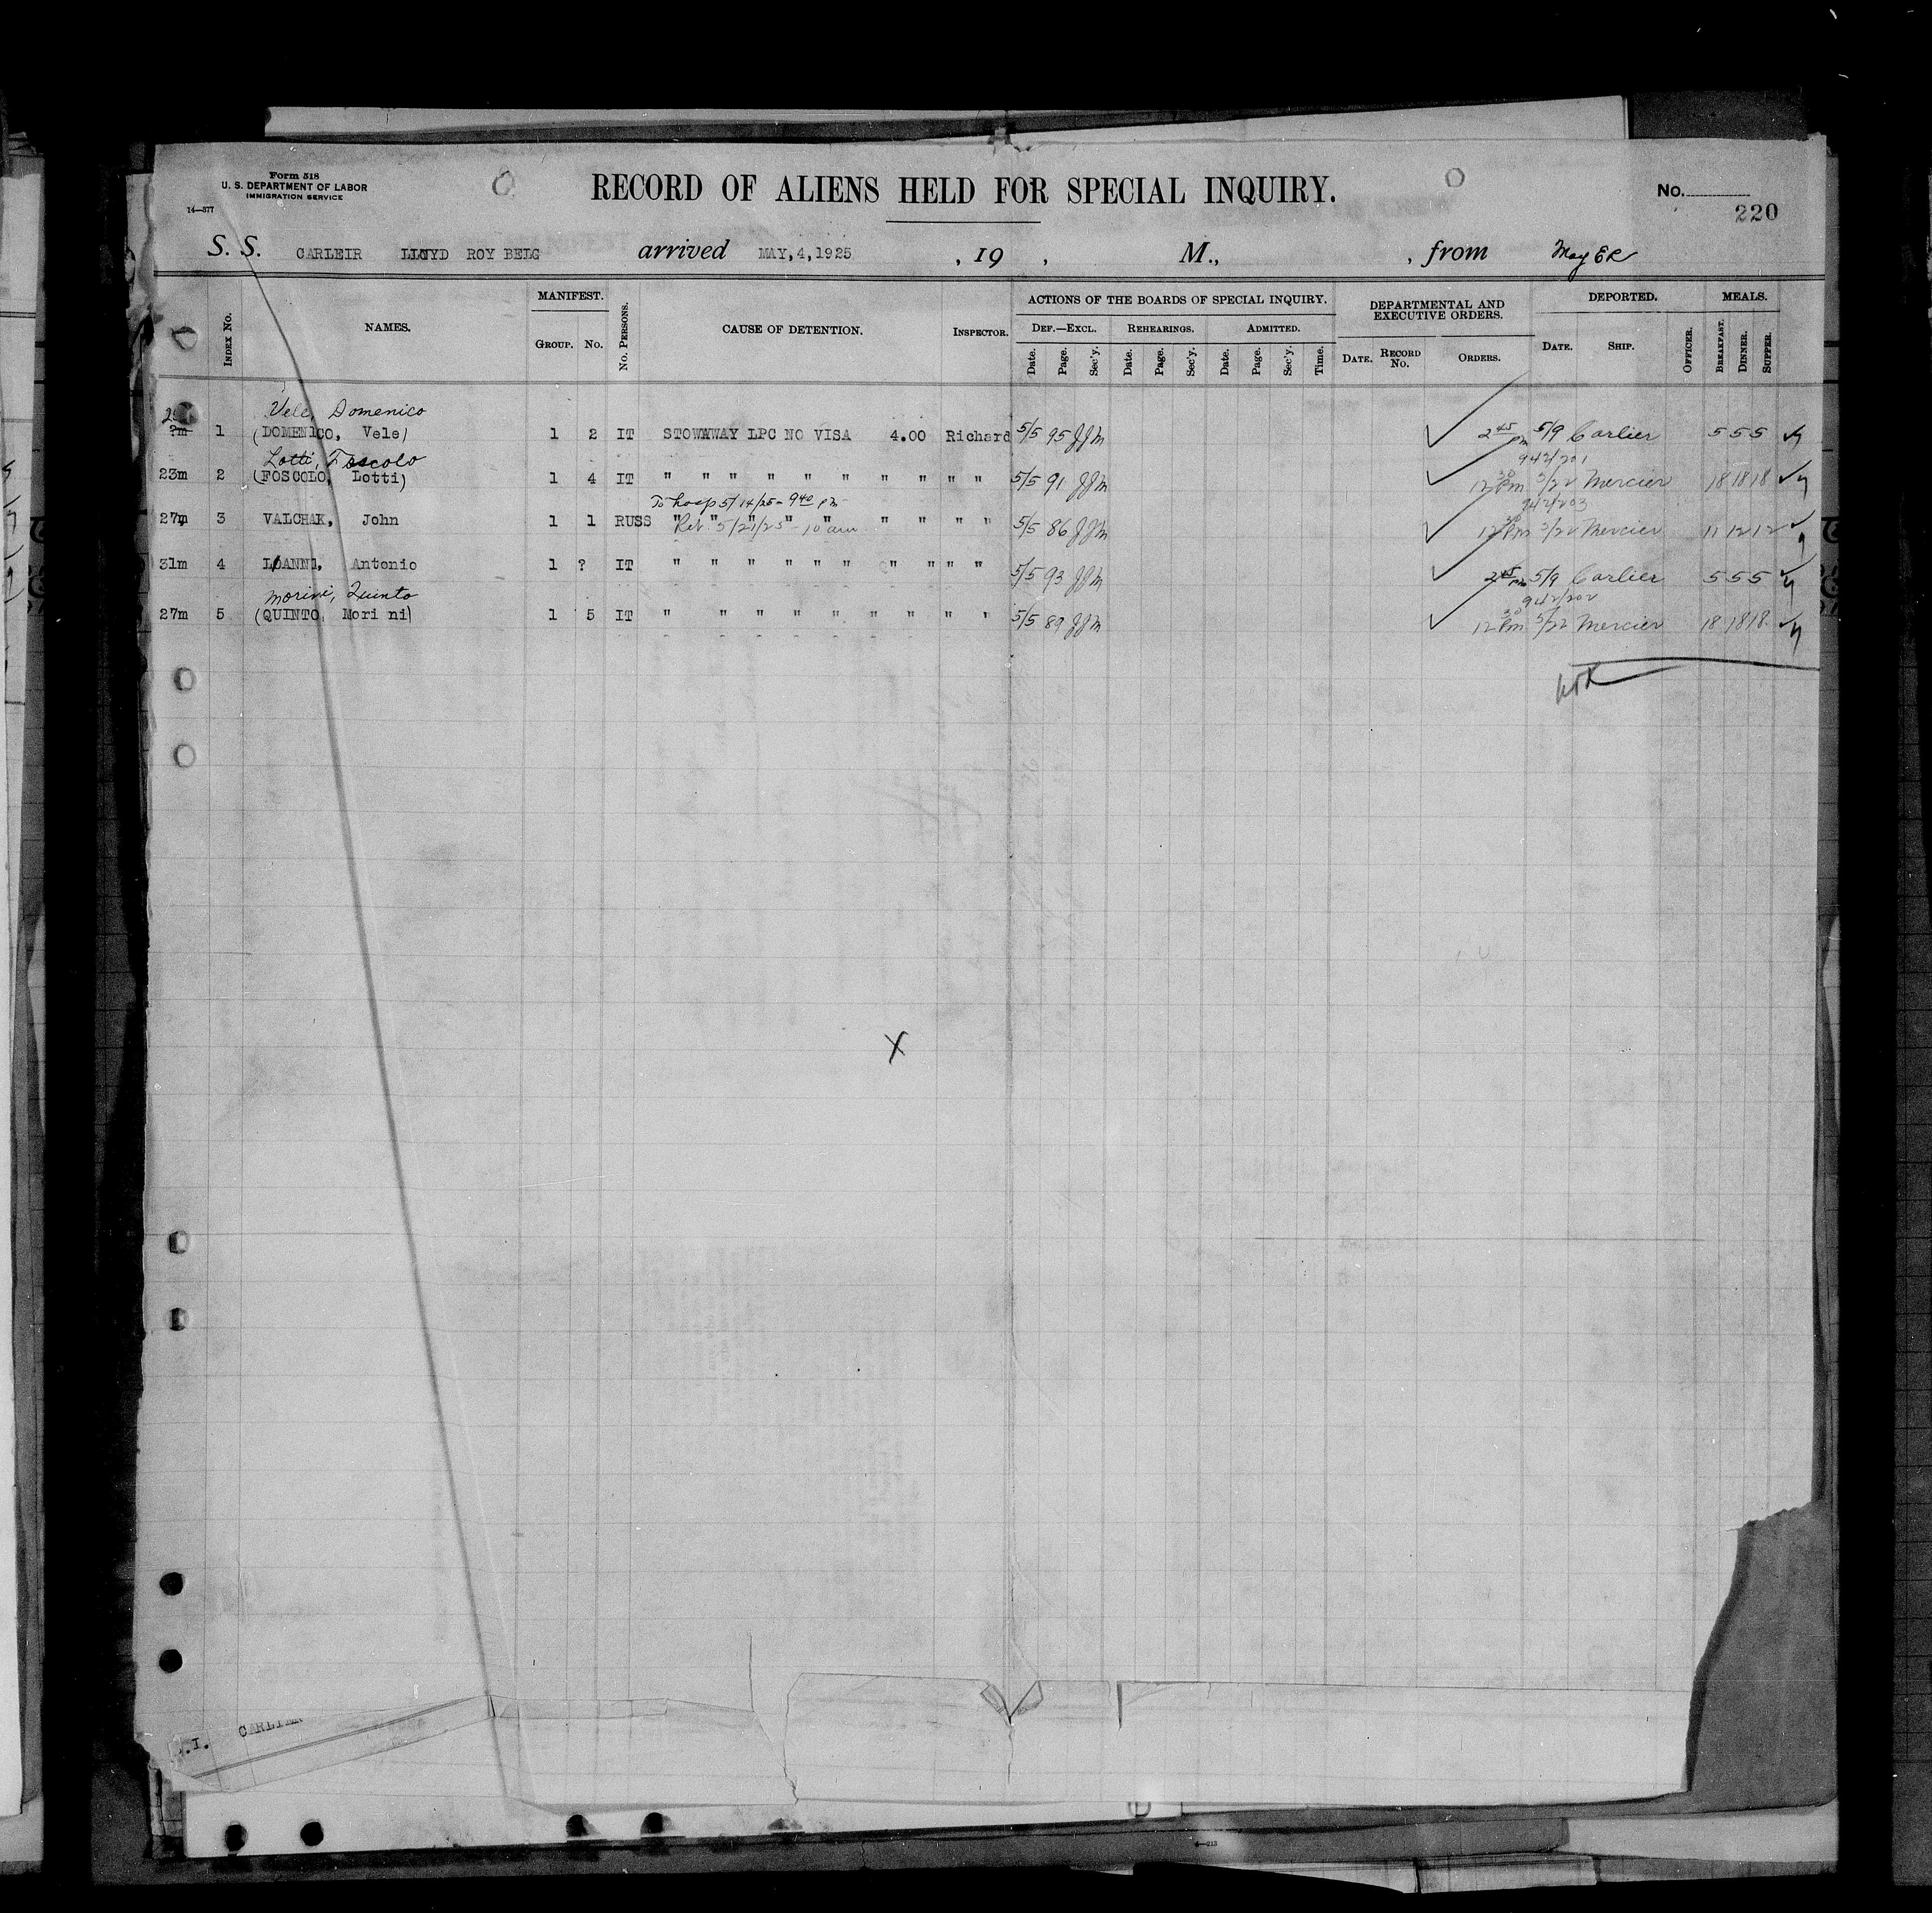 Form 518
U. S. DEPARTMENT OF LABOR
IMMIGRATION SERVICE
14—577
RECORD OF ALIENS HELD FOR SPECIAL INQUIRY.
No.
220
S. S. CARLEIR LLOYD ROY BELG arrived MAY,4,1925 , 19 , M., , from
INDEX No. NAMES. MANIFEST. GROUP. No. No. PERSONS. CAUSE OF DETENTION. INSPECTOR. ACTIONS OF THE BOARDS OF SPECIAL INQUIRY. DEF.—EXCL. Date. Page. Sec'y. REHEARINGS. Date. Page. Sec'y. ADMITTED. Date. Page. Sec'y. Time. DEPARTMENTAL AND EXECUTIVE ORDERS. DATE. RECORD No. ORDERS. DEPORTED. DATE. SHIP. OFFICER. MEALS. BREAKFAST. DINNER. SUPPER.
Vele, Domenico
?m 1 (DOMENICO, Vele) 1 2 IT STOWAWAY LPC NO VISA 4.00 Richard 5/5 95 JJM 2 45 pm 5/9 Carlier 5 5 5
Lotti, Foscolo 942/201
23m 2 (FOSCOLO, Lotti) 1 4 IT " " " " " " " " " " " 5/5 91 JJM 12 30 Pm 5/22 Mercier 18 18 18
To hosp 5/14/25 - 9 40 pm 942/203
27m 3 VALCHAK, John 1 1 RUSS " " " " " " " " " 5/5 86 JJM 12 30 Pm 5/22 Mercier 11 12 12
Ret. 5/21/25 - 10 am
31m 4 LOANNI, Antonio 1 ? IT " " " " " " " " " " 5/5 93 JJM 2 45 pm 5/9 Carlier 5 5 5
Morini, Quinto 942/202
27m 5 (QUINTO, Mori ni) 1 5 IT " " " " " " " " " " 5/5 89 JJM 12 30 Pm 5/22 Mercier 18 18 18
X
.I. CARLIER